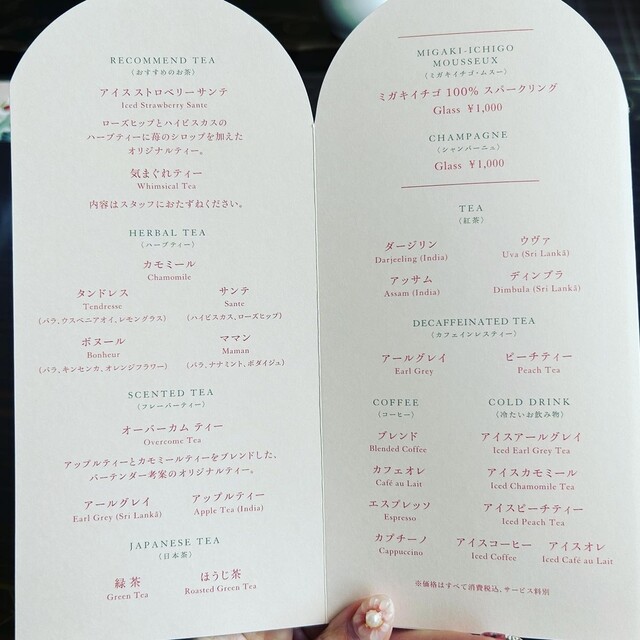 RECOMMEND TEA
(おすすめのお茶)
アイス ストロベリーサンテ
Iced Strawberry Sante
ローズヒップとハイビスカスの
ハーブティーに苺のシロップを加えた
オリジナルティー。
気まぐれティー
Whimsical Tea
内容はスタッフにおたずねください。
HERBAL TEA
(ハーブティー)
カモミール
Chamomile
タンドレス サンテ
Tendresse Sante
(バラ、ウスベニアオイ、レモングラス) (ハイビスカス、ローズヒップ)
ボヌール ママン
Bonheur Maman
(バラ、キンセンカ、オレンジフラワー) (バラ、ナナミント、ボダイジュ)
SCENTED TEA
(フレーバーティー)
オーバーカム ティー
Overcome Tea
アップルティーとカモミールティーをブレンドした、
バーテンダー考案のオリジナルティー。
アールグレイ アップルティー
Earl Grey (Sri Lankā) Apple Tea (India)
JAPANESE TEA
(日本茶)
緑 茶 ほうじ茶
Green Tea Roasted Green Tea
MIGAKI-ICHIGO
MOUSSEUX
(ミガキイチゴ・ムスー)
ミガキイチゴ 100% スパークリング
Glass ¥1,000
CHAMPAGNE
(シャンパーニュ)
Glass ¥1,000
TEA
(紅茶)
ダージリン ウヴァ
Darjeeling (India) Uva (Sri Lankā)
アッサム ディンブラ
Assam (India) Dimbula (Sri Lankā)
DECAFFEINATED TEA
(カフェインレスティー)
アールグレイ ピーチティー
Earl Grey Peach Tea
COFFEE
(コーヒー)
ブレンド
Blended Coffee
カフェオレ
Café au Lait
エスプレッソ
Espresso
カプチーノ
Cappuccino
COLD DRINK
(冷たいお飲み物)
アイスアールグレイ
Iced Earl Grey Tea
アイスカモミール
Iced Chamomile Tea
アイスピーチティー
Iced Peach Tea
アイスコーヒー アイスオレ
Iced Coffee Iced Café au Lait
※価格はすべて消費税込、サービス料別